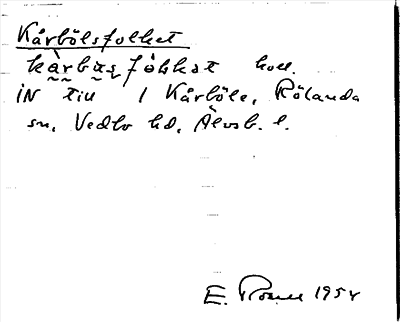 Kårbölsfolket
kàrbu̯s fòk̥kət koll.
IN till 1 Kårböle, Rölanda
sn, Vedbo hd, Älvsb. l.
E. 1954